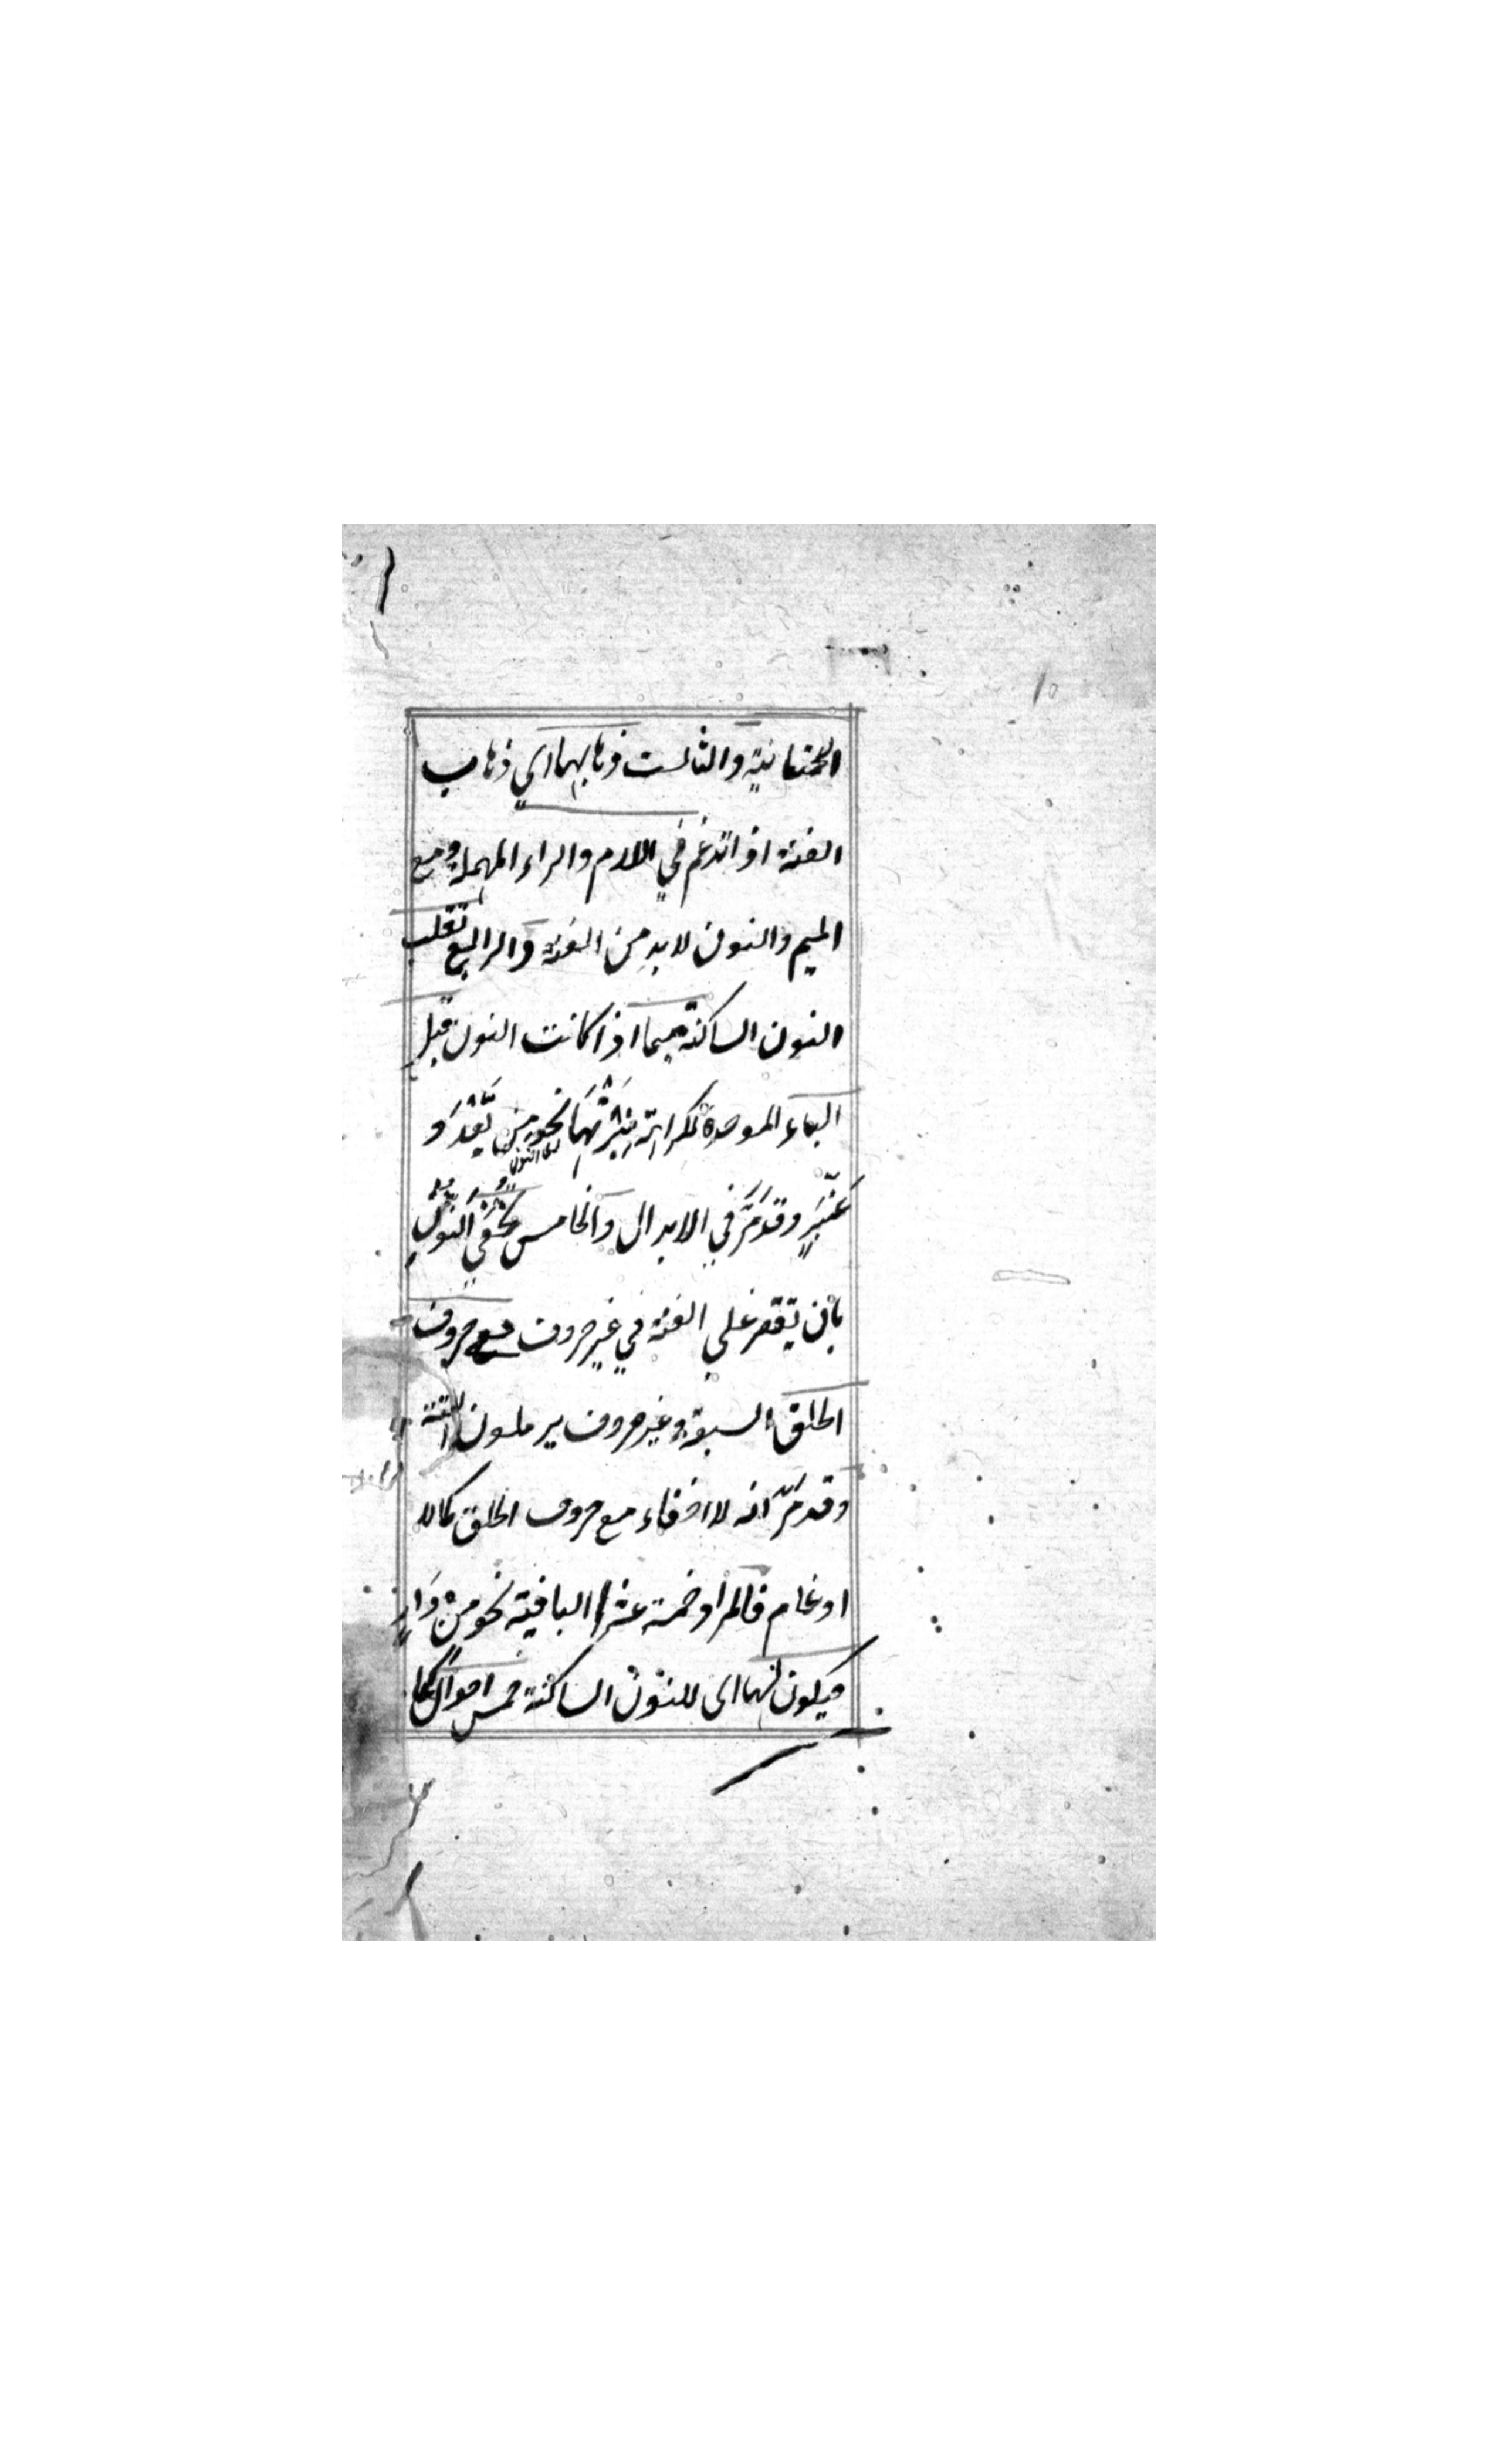 التحتانية والثالث ذهابهما اي ذهاب
الغنة اذا تدغم في اللام والراء المهملة ومع
الميم والنون لابد من الغنة والرابع تقلب
النون الساكنة ميما اذا كانت النون قبل
الباء الموحدة لكراهة نبرتهما نحو من بَعْد وَ
عَنْبَرٍ وقد مَرَّ في الابدال والخامس تخفي النون
بأن يقتصر علي الغنة في غير حروف مع حروف
الحلق السبعة وغير حروف يرملون الستة
وقد مَرَّ انه لا اخفاء مع حروف الحلق كما لا
ادغام فالمراد خمسة عشر الباقية نحو من دَارٍ
فيكون لها اى للنون الساكنة خمس احوال كما